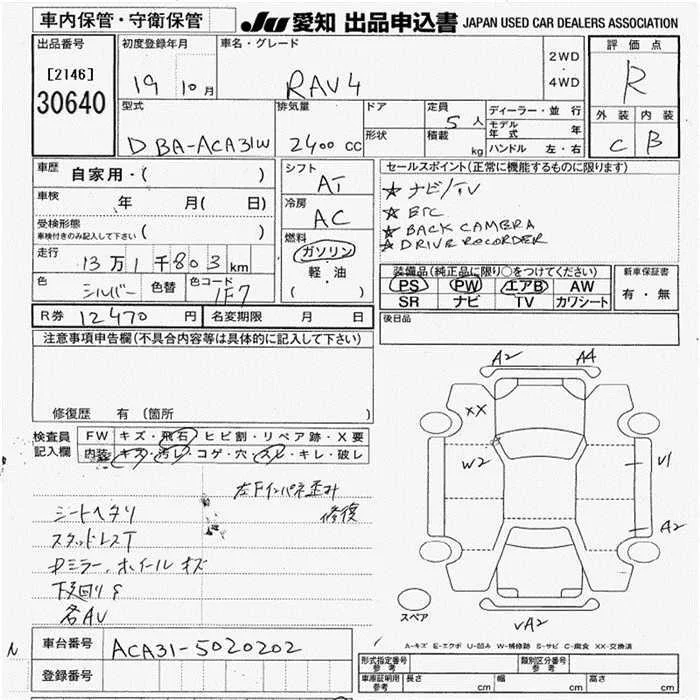 車内保管・守衛保管
JU 愛知 出品申込書 JAPAN USED CAR DEALERS ASSOCIATION
出品番号
[2146]
30640
初度登録年月
19 10月
車名・グレード
RAV4
2WD
・
4WD
評価点
R
外装 内装
C B
型式
DBA-ACA31W
排気量
2400 cc
ドア
形状
定員
5人
積載
kg
ディーラー・並 行
モデル年式 年
ハンドル 左・右
車歴
自家用・( )
車検
年 月( 日)
受検形態
車検付きのみ記入して下さい ( )
走行
13万1千803km
色
シルバー
色替
色コード
1F7
シフト
AT
冷房
AC
燃料
ガソリン
軽・油
( )
セールスポイント(正常に機能するものに限ります)
☆ ナビ/TV
☆ ETC
☆ BACK CAMERA
☆ DRIVE RECORDER
装備品(純正品に限り○をつけてください)
PS PW エアB AW
SR ナビ TV カワシート
新車保証書
有・無
R券 12470 円
名変期限 月 日
後日品
注意事項申告欄(不具合内容等は具体的に記入して下さい)
修復歴 有 〔箇所 〕
検査員
記入欄
FW キズ・飛石・ヒビ割・リペア跡・X要
内装 キズ・汚レ・コゲ・穴・スレ・キレ・破レ
左Fインパネ歪み
修復
シートヘタリ
スタッドレスT
ドミラー、ホイールキズ
下廻りS
各AU
A2 A4
XX
W2
U1
A2
VA2
スペア
A-キズ E-エクボ U-凹み W-補修跡 S-サビ C-腐食 XX-交換済
車台番号
ACA31-5020202
登録番号
型式指定番号
参考
類別区分番号
参考
車庫証明用
参考
長さ cm
幅 cm
高さ cm